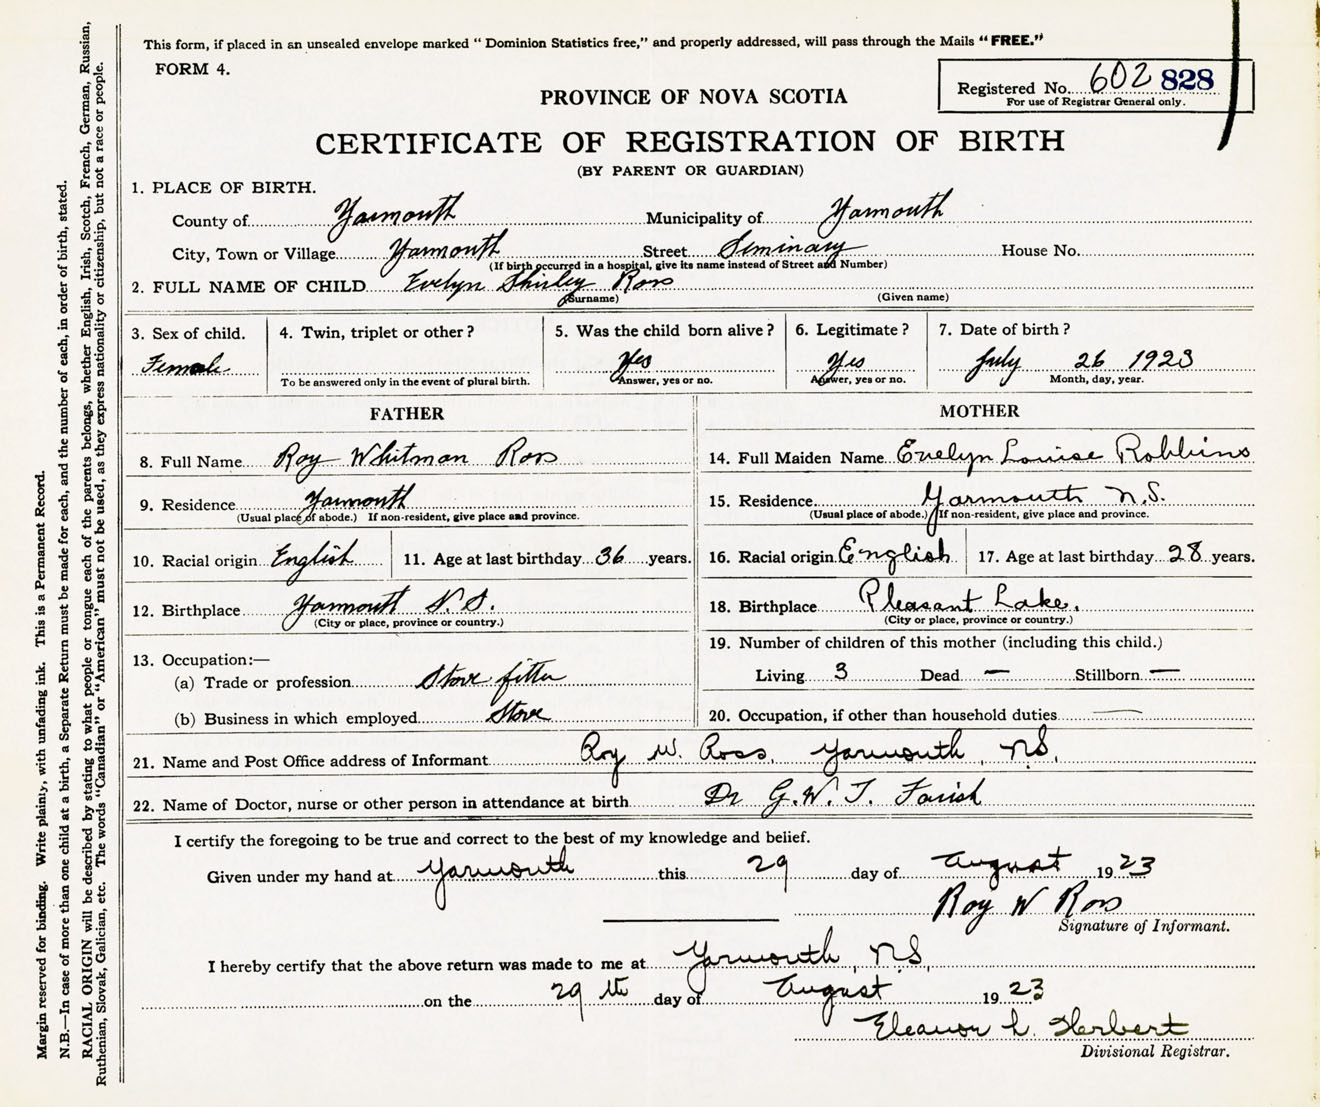 This form, if placed in an unsealed envelope marked “ Dominion Statistics free,” and properly addressed, will pass through the Mails “FREE.”
FORM 4.
Registered No. 602 828
For use of Registrar General only.
PROVINCE OF NOVA SCOTIA
CERTIFICATE OF REGISTRATION OF BIRTH
(BY PARENT OR GUARDIAN)
1. PLACE OF BIRTH.
County of Yarmouth Municipality of Yarmouth
City, Town or Village Yarmouth Street Seminary House No.
(If birth occurred in a hospital, give its name instead of Street and Number)
2. FULL NAME OF CHILD Evelyn Shirley Ross
(Surname) (Given name)
3. Sex of child. 4. Twin, triplet or other? 5. Was the child born alive? 6. Legitimate? 7. Date of birth?
Female Yes Yes July 26 1923
To be answered only in the event of plural birth. Answer, yes or no. Answer, yes or no. Month, day, year.
FATHER
8. Full Name Roy Whitman Ross
9. Residence Yarmouth
(Usual place of abode.) If non-resident, give place and province.
10. Racial origin English 11. Age at last birthday 36 years.
12. Birthplace Yarmouth N.S.
(City or place, province or country.)
13. Occupation:—
(a) Trade or profession Stove fitter
(b) Business in which employed Stove
MOTHER
14. Full Maiden Name Evelyn Louise Robbins
15. Residence Yarmouth N.S.
(Usual place of abode.) If non-resident, give place and province.
16. Racial origin English 17. Age at last birthday 28 years.
18. Birthplace Pleasant Lake.
(City or place, province or country.)
19. Number of children of this mother (including this child.)
Living 3 Dead — Stillborn —
20. Occupation, if other than household duties —
21. Name and Post Office address of Informant Roy W. Ross, Yarmouth, N.S.
22. Name of Doctor, nurse or other person in attendance at birth Dr G.W.T. Farish
I certify the foregoing to be true and correct to the best of my knowledge and belief.
Given under my hand at Yarmouth this 29 day of August 1923
Roy W Ross
Signature of Informant.
I hereby certify that the above return was made to me at Yarmouth, N.S,
on the 29th day of August 1923
Eleanor L. Herbert
Divisional Registrar.
Margin reserved for binding. Write plainly, with unfading ink. This is a Permanent Record.
N.B.—In case of more than one child at a birth, a Separate Return must be made for each, and the number of each, in order of birth, stated.
RACIAL ORIGIN will be described by stating to what people or tongue each of the parents belongs, whether English, Irish, Scotch, French, German, Russian,
Ruthenian, Slovak, Galician, etc. The words “Canadian” or “American” must not be used, as they express nationality or citizenship, but not a race or people.